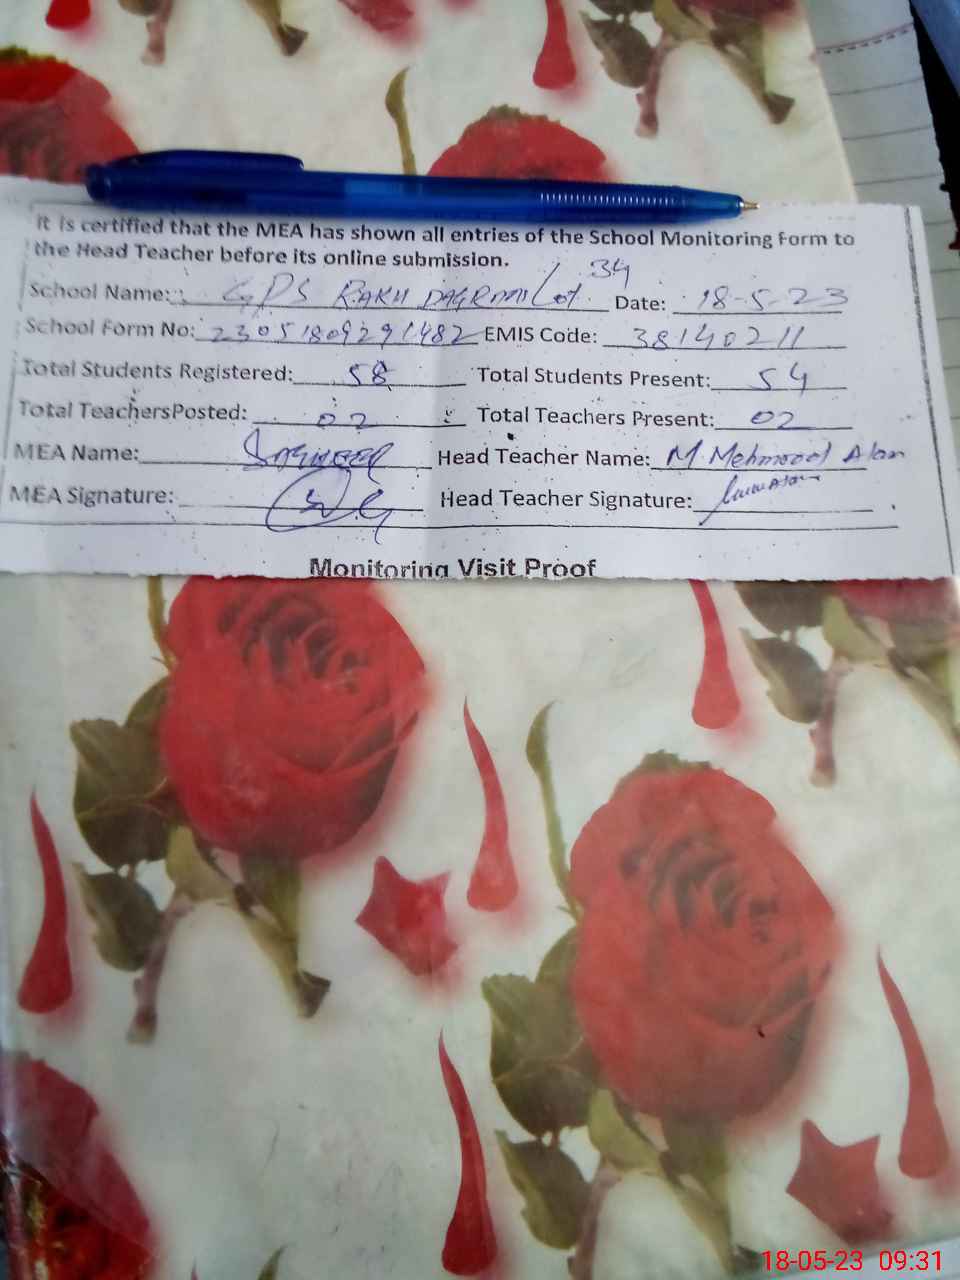 It is certified that the MEA has shown all entries of the School Monitoring Form to
the Head Teacher before its online submission.
School Name: GPS RAKH DAGRAAI Lot 34 Date: 18-5-23
School Form No: 23051809291482 EMIS Code: 38140211
Total Students Registered: 58 Total Students Present: 54
Total TeachersPosted: 02 Total Teachers Present: 02
MEA Name: Head Teacher Name: M. Mehmood Alam
MEA Signature: Head Teacher Signature:
Monitoring Visit Proof
18-05-23 09:31